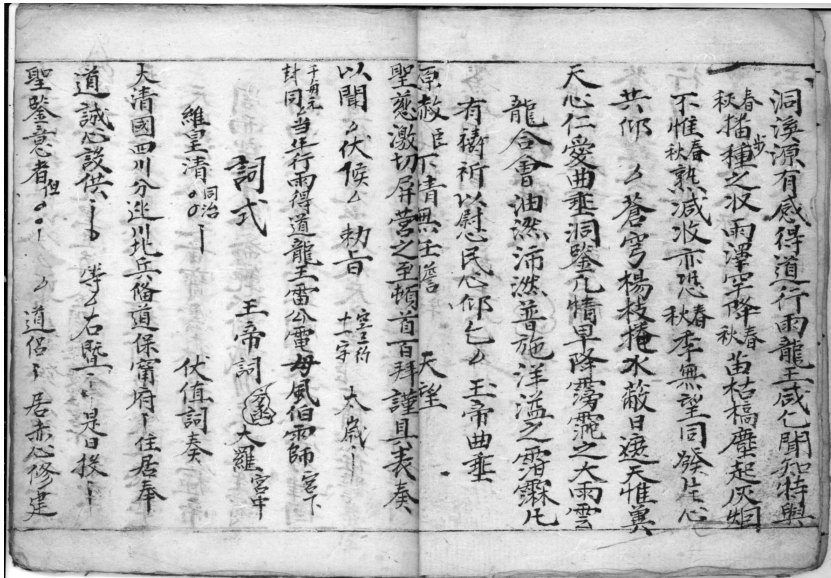 洞渙源有感得道行雨龍王咸乞聞知特與
春秋播種之収雨澤罕降春秋苗枯槁塵起灰烟
不惟春秋熟减收亦恐春秋季無望同發生心
共仰〻蒼穹楊枝掩水蔽日遮天惟冀
天心仁愛曲垂洞鑒凡情早降霶霈之大雨雲
龍合會油然沛然普施洋溢之霄霖凡
有禱祈以慰民心仰乞〻玉帝曲垂
原赦臣下情無任詹 天望
聖慈激切屏營之至頓首百拜謹具表奏
以聞〻伏候〻勅旨 太歲
封同〻當年行雨得道龍王雷公電母風伯雨師宮下
詞式 王帝詞 大羅宮中
維皇清同治 伏值詞奏
大清國四川分巡川北兵俻道保甯府 住居奉
道誠心設供 等〻右暨 是日投
聖鑒意者但 〻道侶 居赤心修建